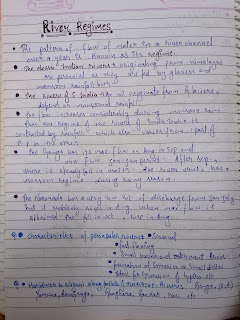 River Regimes
• The pattern of flow of water in a river channel
over a year is known as its regime.
• The north Indian rivers originating from himalayas
are perennial as they are fed by glaciers and
monsoonal rainfall
• The rivers of S India do not originate from glaciers
depend on monsoonal rainfall
• The flow increases considerably during monsoon rains
Thus the regime of the rivers of South India is
controlled by rainfall which also varies from 1 part of
to the other.
• The Ganga has its max flow in Aug or Sep and
min flow Jan-Jun period. After sep,
there is steady fall in water. The river thus, has
monsoon regime during rainy season
• The Narmada has a very low vol of discharge from Jan-July
but it suddenly rises in Aug when max flow is
attained. The fall in oct,
Q. • characteristics of peninsular rivers • Seasonal
• fast flowing
• Small basins and catchment areas
• formation of Estuaries or small deltas
• Ideal for Generation of hydro ele
Q. •
Yamuna, Ramganga, Ghaghara, Gandak, Kosi etc